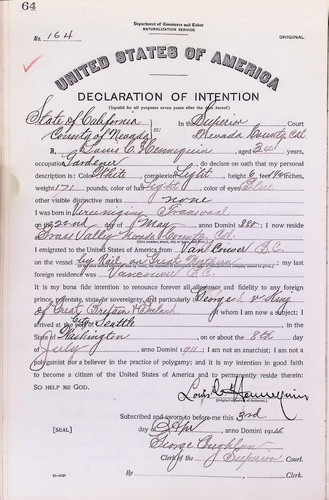 64
Department of Commerce and Labor
NATURALIZATION SERVICE
No. 164
ORIGINAL
UNITED STATES OF AMERICA
DECLARATION OF INTENTION
(Invalid for all purposes seven years after the date hereof)
State of California
In the Superior Court
County of Nevada ss:
Nevada County Cal
I, Louis C. Hennequin, aged
occupation Gardener, do declare on oath that my personal
description is: Color White, complexion Light, height 6 feet inches,
weight 171 pounds, color of hair Light, color of eyes Blue
other visible distinctive marks none
I was born in Vereeniging Transvaal
on the 22nd day of May, anno Domini 1880; I now reside
at Grass Valley Nevada County Cal.
I emigrated to the United States of America from Vancouver B.C.
on the vessel by Rail on Great Northern; my last
foreign residence was Vancouver B.C.
It is my bona fide intention to renounce forever all allegiance and fidelity to any foreign
prince, potentate, state, or sovereignty, and particularly to George V King
of Great Britain & Ireland, of whom I am now a subject; I
arrived at the City of Seattle, in the
State of Washington, on or about the 8th day
of July, anno Domini 1911; I am not an anarchist; I am not a
polygamist nor a believer in the practice of polygamy; and it is my intention in good faith
to become a citizen of the United States of America and to permanently reside therein:
SO HELP ME GOD.
Louis C. Hennequin
Subscribed and sworn to before me this 3rd
[SEAL] day of Apr, anno Domini 1916
George
Clerk of the Superior Court.
By , Clerk.